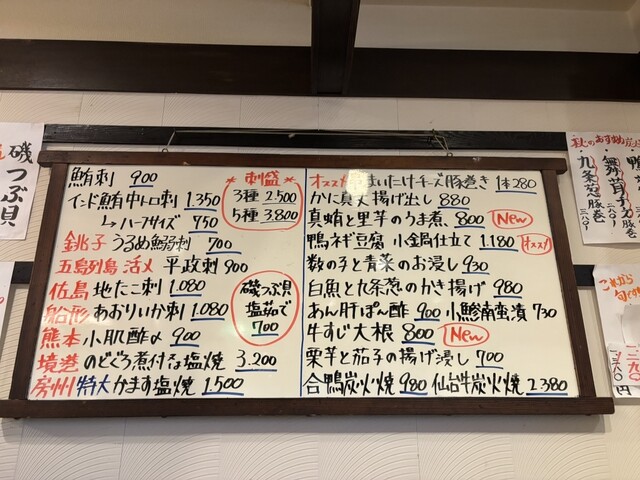 鮪刺 900
インド鮪中トロ刺 1.350
↳ハーフサイズ 750
銚子 うるめ鰯刺 700
五島列島 活〆 平政刺 900
佐島 地たこ刺 1.080
船形 あおりいか刺 1.080
熊本 小肌酢〆 900
境港 のどぐろ煮付な塩焼 3.200
房州 特大かます塩焼 1.500
* 刺盛 *
3種 2.500
5種 3.800
磯つぶ貝
塩茹で
700
オススメ まいたけチーズ豚巻き 1本280
かに真丈揚げ出し 880
真蛸と里芋のうま煮 800 New
鴨ネギ豆腐 小鍋仕立て 1.180 オススメ
数の子と青菜のお浸し 930
白魚と九条葱のかき揚げ 980
あん肝ぽん酢 900 小鯵南蛮漬 730
牛すじ大根 800 New
栗芋と茄子の揚げ浸し 700
合鴨炭火焼 980 仙台牛炭火焼 2.380
磯つぶ貝
九条葱豚巻
これから